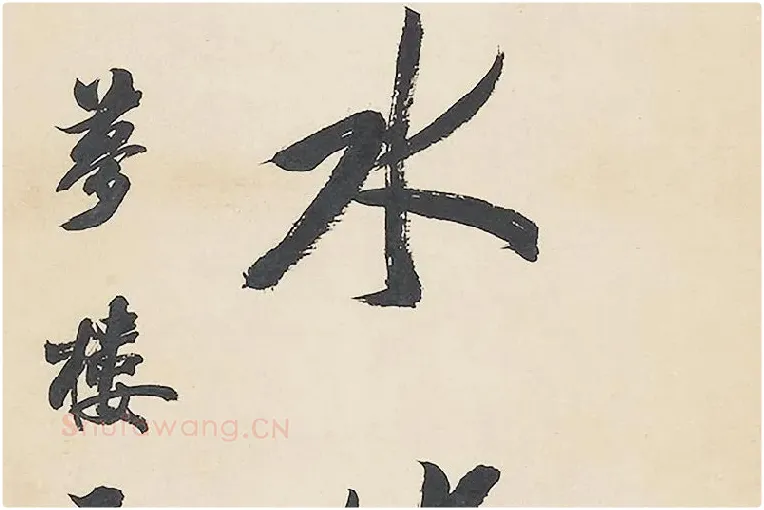 水
夢樓
Shufawang.CN